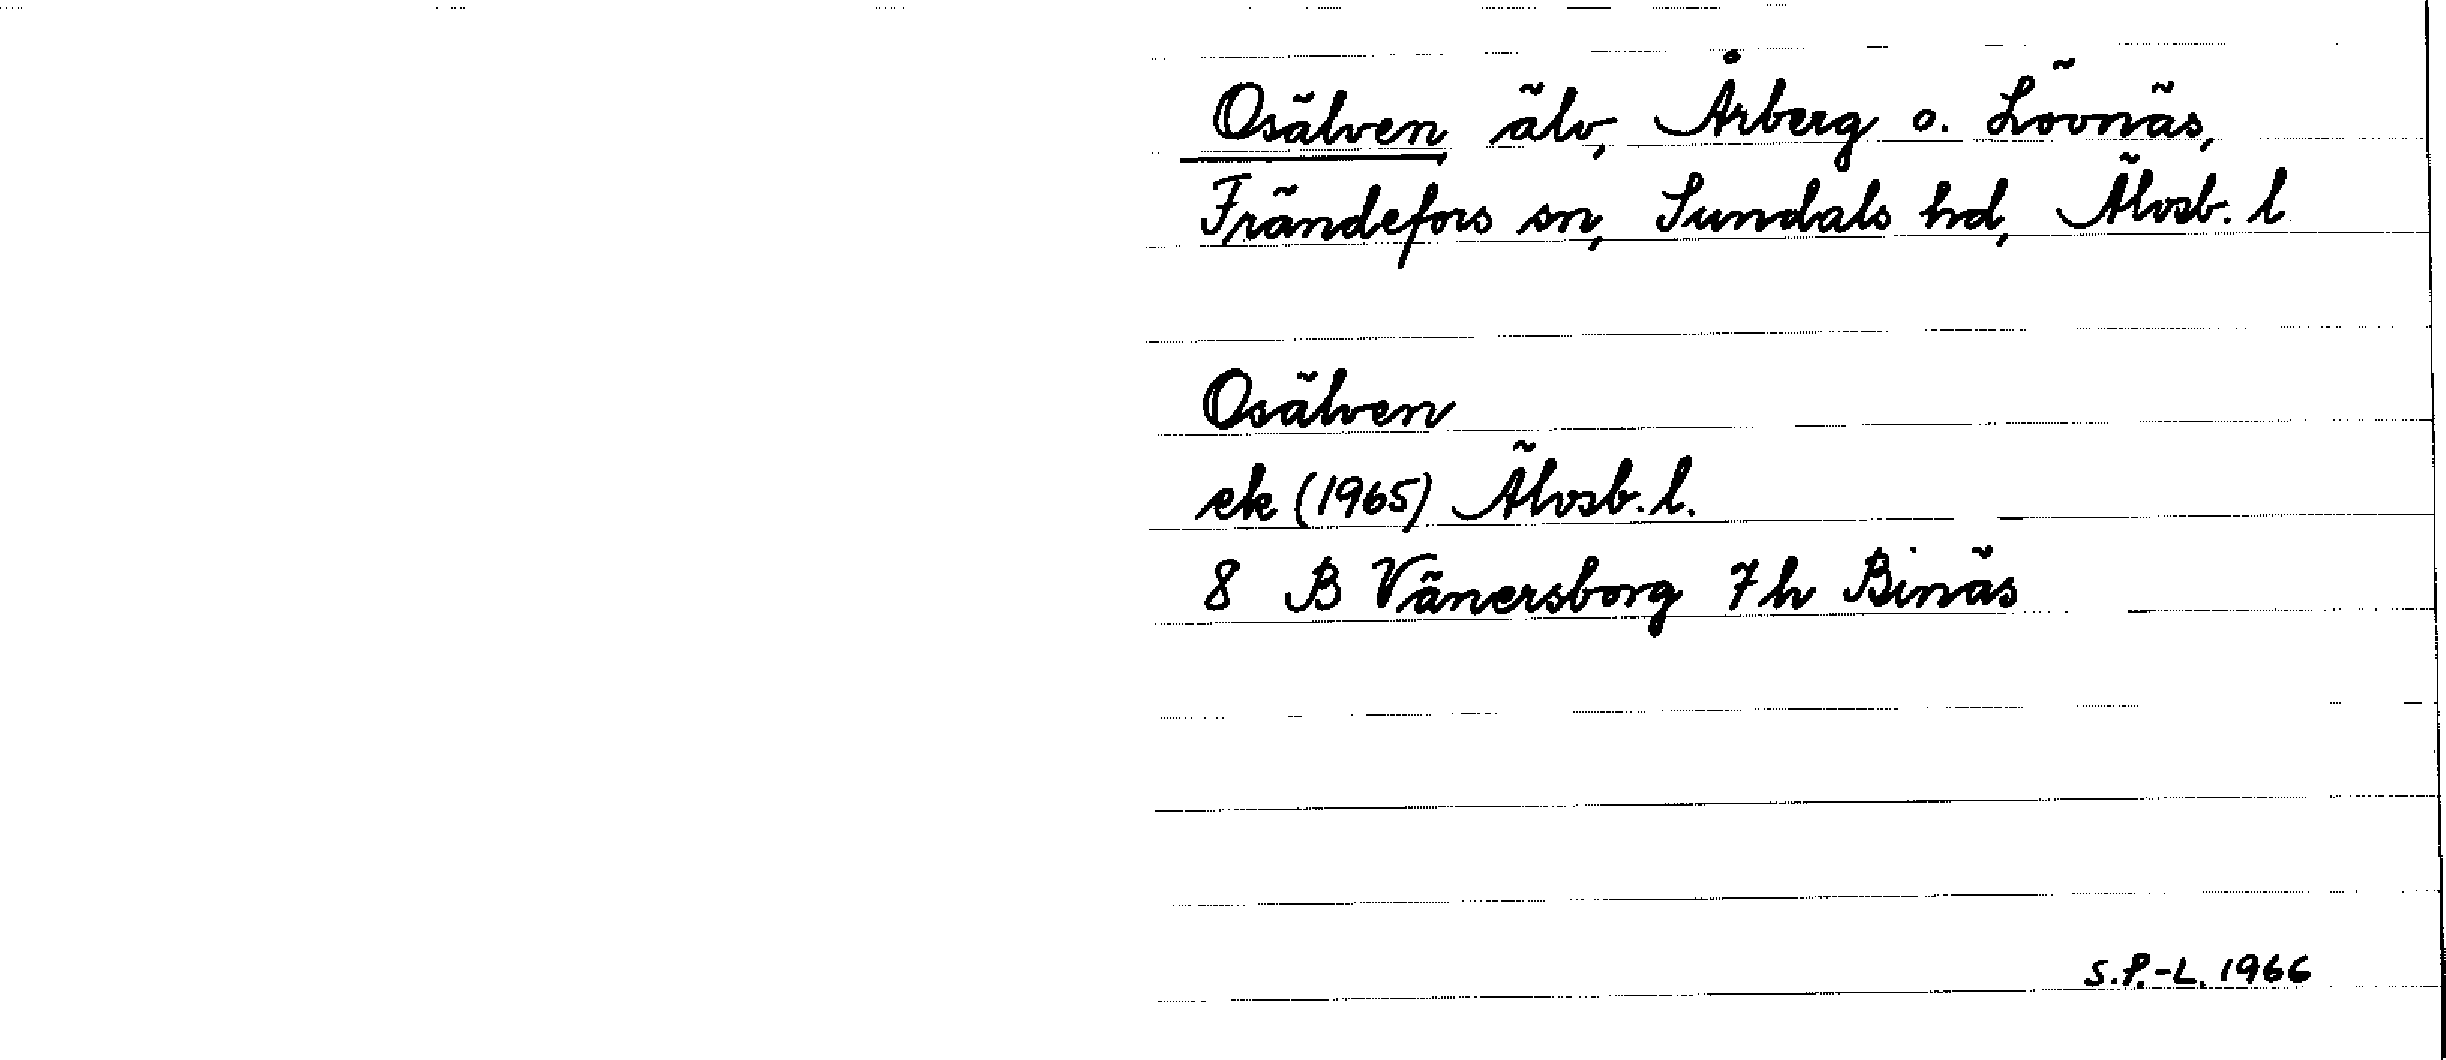 Osälven älv, Årberg o. Lövnäs,
Frändefors sn, Sundals hd, Älvsb. l
Osälven
ek (1965) Älvsb. l.
8 B Vänersborg 7h Binäs
S.P.-L. 1966